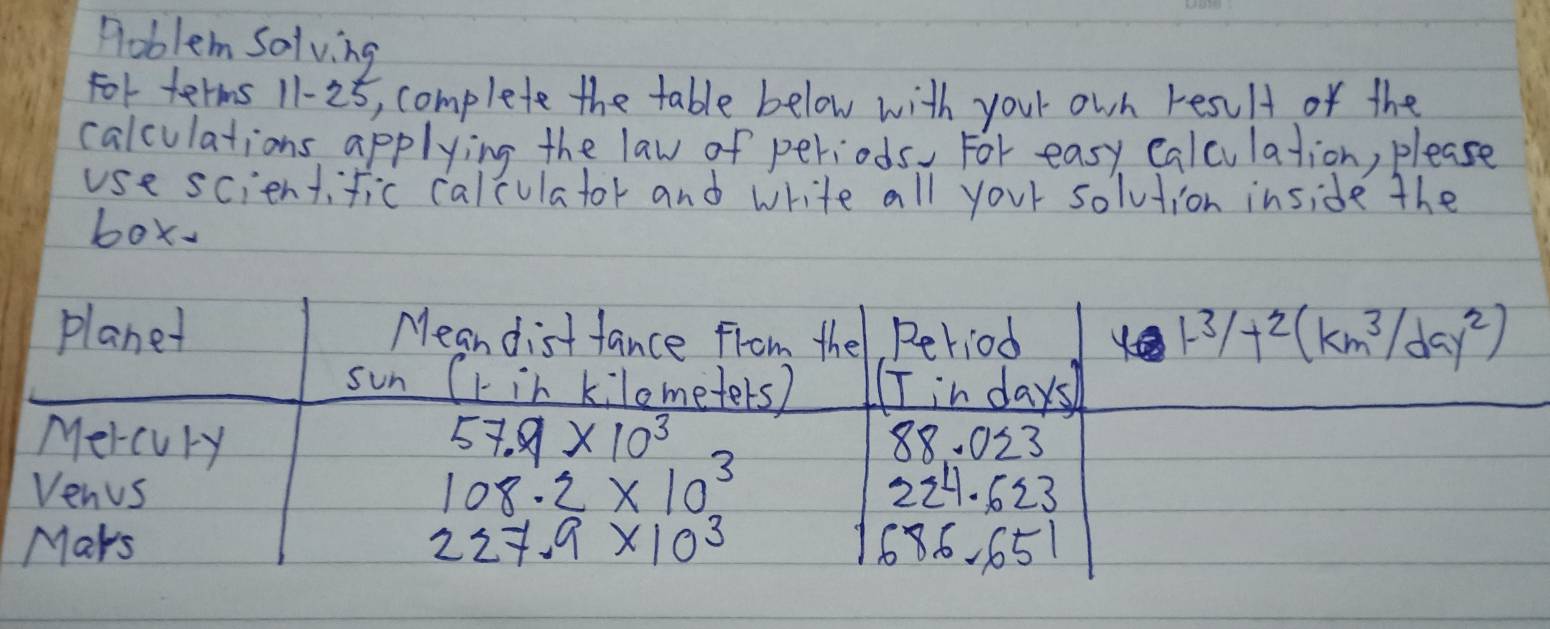 Problem Solving
For terms 11-25, complete the table below with your own result of the
calculations applying the law of periods. For easy calculation, please
use scientific calculator and write all your solution inside the
box.
Planet Mean dist tance From the Period r³/t²(km³/day²)
sun (r in kilometers) (T in days)
Mercury 57.9 × 10³ 88.023
Venus 108.2 × 10³ 224.623
Mars 227.9 × 10³ 686.651